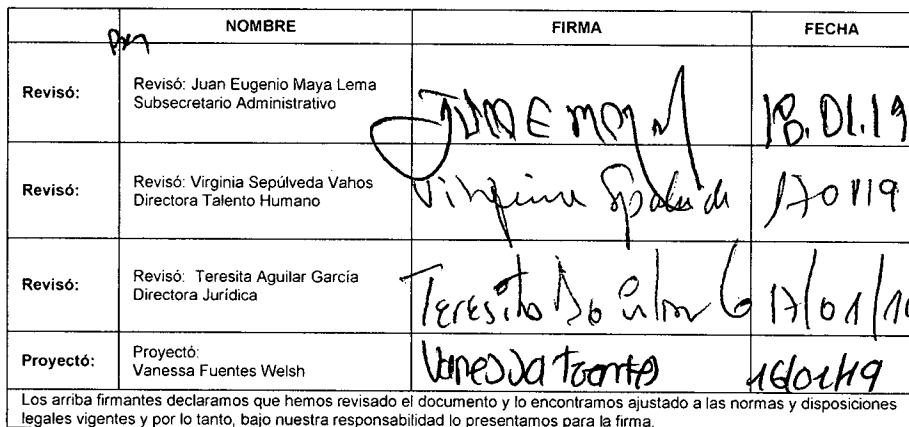 NOMBRE FIRMA FECHA
Revisó: Revisó: Juan Eugenio Maya Lema
Subsecretario Administrativo
18.01.19
Revisó: Revisó: Virginia Sepúlveda Vahos
Directora Talento Humano
Virginia 170119
Revisó: Revisó: Teresita Aguilar García
Directora Jurídica
Teresita 17/01/
Proyectó: Proyectó:
Vanessa Fuentes Welsh
Vanessa Fuentes 16/01/19
Los arriba firmantes declaramos que hemos revisado el documento y lo encontramos ajustado a las normas y disposiciones
legales vigentes y por lo tanto, bajo nuestra responsabilidad lo presentamos para la firma.